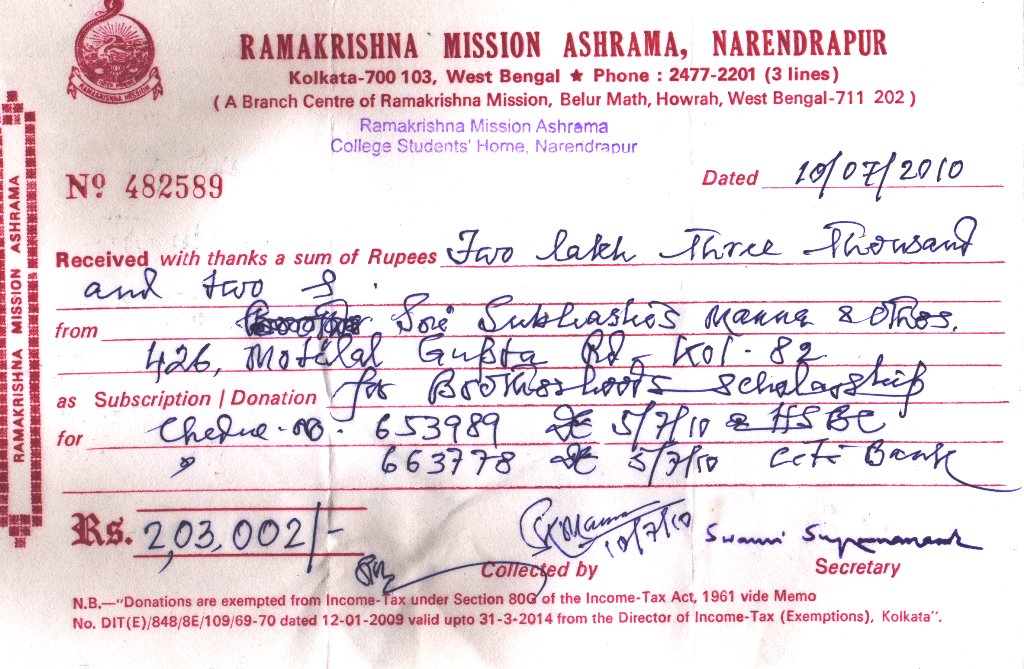 RAMAKRISHNA MISSION
RAMAKRISHNA MISSION ASHRAMA, NARENDRAPUR
Kolkata-700 103, West Bengal ★ Phone : 2477-2201 (3 lines)
( A Branch Centre of Ramakrishna Mission, Belur Math, Howrah, West Bengal-711 202 )
Ramakrishna Mission Ashrama
College Students' Home, Narendrapur
RAMAKRISHNA MISSION ASHRAMA
Nº 482589
Dated 10/07/2010
Received with thanks a sum of Rupees Two lakh Three Thousand
and two
from Sri Subhashis Manna & Others.
426, Motilal Gupta Rd, Kol - 82
as Subscription / Donation for Brotherhoods Scholarship
for Cheque No. 653989 5/7/10 HSBC
" 663778 5/7/10 Citi Bank
Rs. 2,03,002/-
SK Manna
10/7/10
Collected by
Swami Suparnananda
Secretary
N.B.—"Donations are exempted from Income-Tax under Section 80G of the Income-Tax Act, 1961 vide Memo
No. DIT(E)/848/8E/109/69-70 dated 12-01-2009 valid upto 31-3-2014 from the Director of Income-Tax (Exemptions), Kolkata".